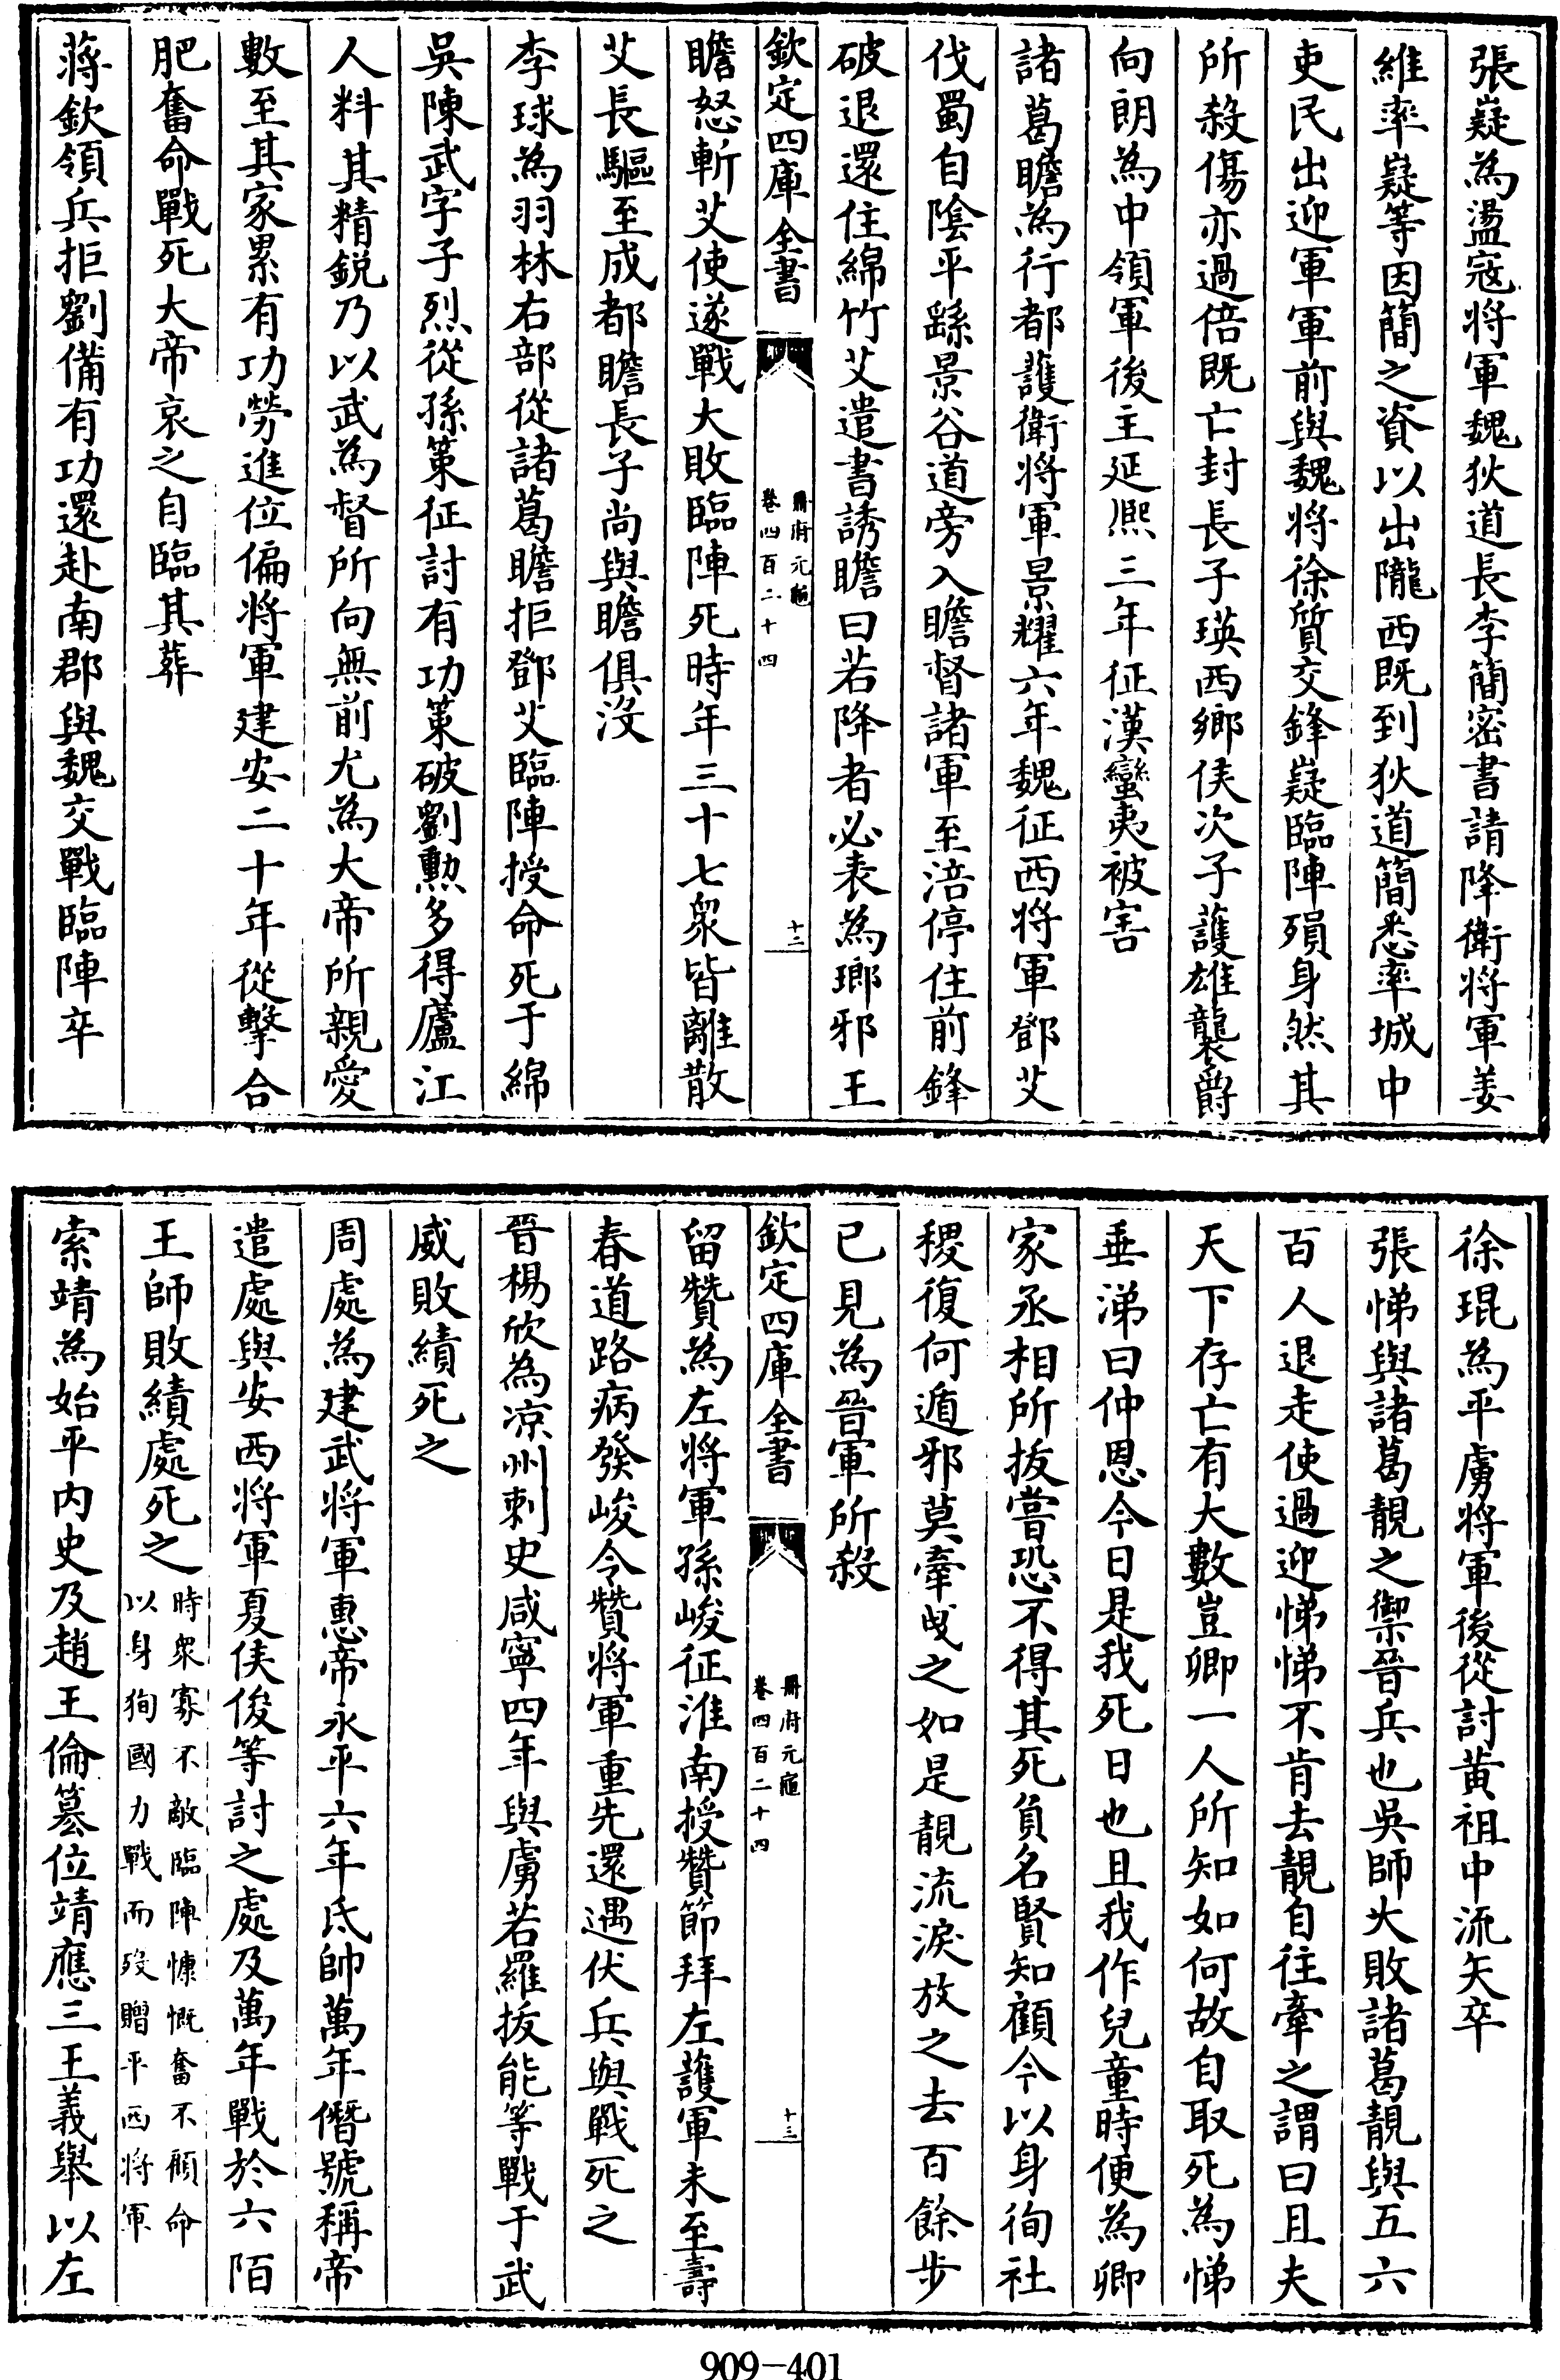 張嶷為盪寇將軍魏狄道長李簡密書請降衛將軍姜
維率嶷等因簡之資以出隴西既到狄道簡悉率城中
吏民出迎軍軍前與魏將徐質交鋒嶷臨陣殞身然其
所殺傷亦過倍既亡封長子瑛西鄉侯次子護雄襲爵
向朗為中領軍後主延熙三年征漢蠻夷被害
諸葛瞻為行都護衛將軍景耀六年魏征西將軍鄧艾
伐蜀自陰平繇景谷道旁入瞻督諸軍至涪停住前鋒
破退還住綿竹艾遣書誘瞻曰若降者必表為瑯邪王
欽定四庫全書
冊府元龜
卷四百二十四
十二
瞻怒斬艾使遂戰大敗臨陣死時年三十七衆皆離散
艾長驅至成都瞻長子尚與瞻俱沒
李球為羽林右部從諸葛瞻拒鄧艾臨陣授命死于綿
吳陳武字子烈從孫策征討有功策破劉勲多得廬江
人料其精銳乃以武為督所向無前尤為大帝所親愛
數至其家累有功勞進位偏將軍建安二十年從擊合
肥奮命戰死大帝哀之自臨其葬
蔣欽領兵拒劉備有功還赴南郡與魏交戰臨陣卒
徐琨為平虜將軍後從討黃祖中流矢卒
張悌與諸葛靚之禦晉兵也吳師大敗諸葛靚與五六
百人退走使過迎悌悌不肯去靚自往牽之謂曰且夫
天下存亡有大數豈卿一人所知如何故自取死為悌
垂涕曰仲恩今日是我死日也且我作兒童時便為卿
家丞相所拔嘗恐不得其死負名賢知顧今以身徇社
稷復何遁邪莫牽曵之如是靚流淚放之去百餘步
已見為晉軍所殺
欽定四庫全書
冊府元龜
卷四百二十四
十三
留贊為左將軍孫峻征淮南授贊節拜左護軍未至壽
春道路病發峻令贊將軍重先還遇伏兵與戰死之
晉楊欣為凉州刺史咸寧四年與虜若羅拔能等戰于武
威敗績死之
周處為建武將軍惠帝永平六年氐帥萬年僭號稱帝
遣處與安西將軍夏侯俊等討之處及萬年戰於六陌
王師敗績處死之時衆寡不敵臨陣慷慨奮不顧命
以身狥國力戰而歿贈平西將軍
索靖為始平內史及趙王倫簒位靖應三王義舉以左
909-401